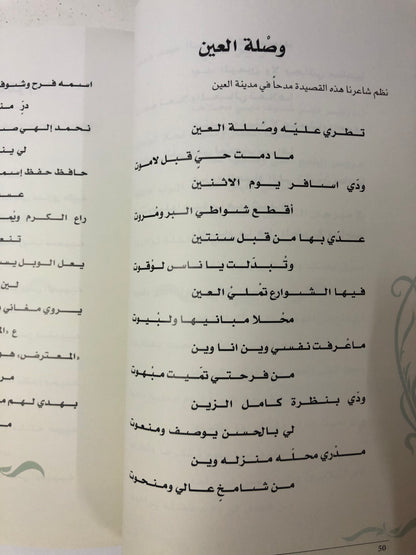 وصْلة العين
نظم شاعرنا هذه القصيدة مدحاً في مدينة العين
تطري عليّه وصْلة العين
ما دمت حيٍّ قبل لاموت
ودّي اسافر يوم الاثنين
أقطع شواطي البر ومْروت
عدّي بها من قبل سنتين
وتْبدّلت يا ناس لوْقوت
فيها الشوارع تمْلي العين
محْلا مبانيها ولبْيوت
ماعرفت نفسي وين انا وين
من فرحتي تمّيت مبْهوت
ودّي بنظرة كامل الزين
لي بالحسن يوصف ومنعوت
مدّري محلّه منزله وين
من شامخٍ عالي ومنحوت
50
اسمه فرح وشوف
نحمد إلهي
حافظ حفظ
راع الكرم
يعل الوبل
لين
يروي مغاني
بهدي لهم